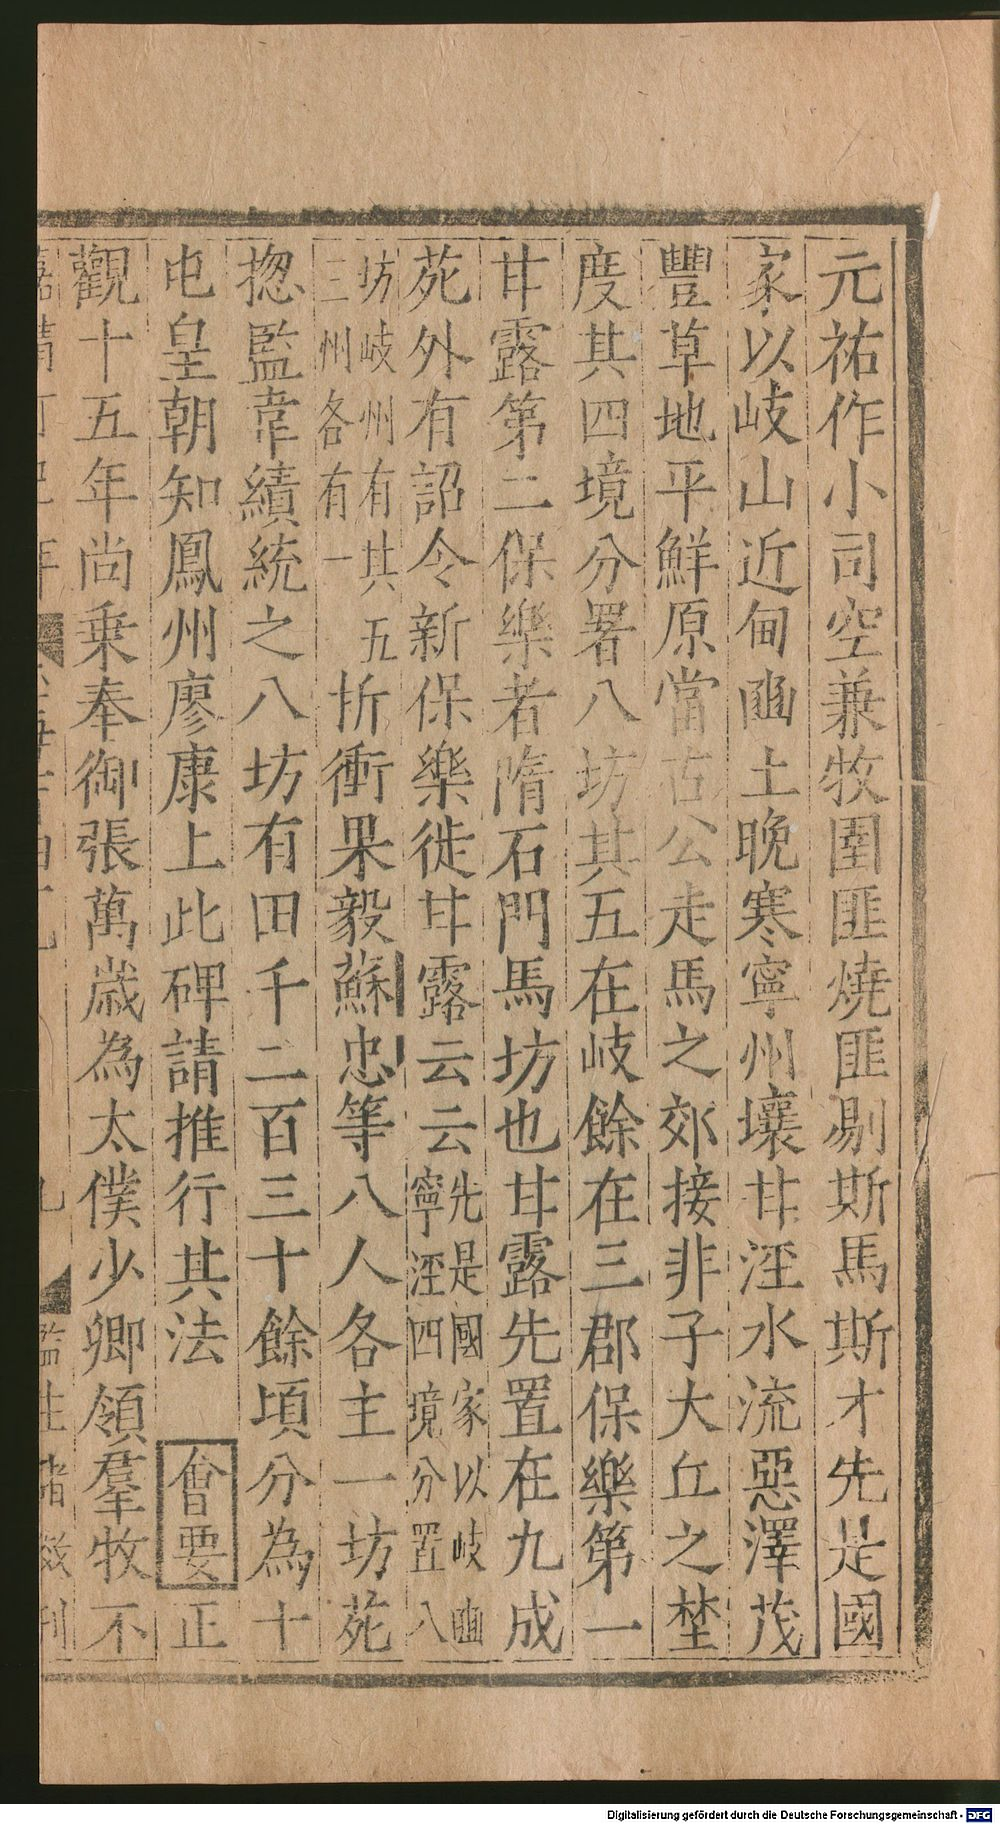 元祐作小司空兼牧圉匪燒匪剔斯馬斯才先是國
家以岐山近甸豳土晚寒寧州壤甘涇水流惡澤茂
豐草地平鮮原當古公走馬之郊接非子大丘之埜
度其四境分署八坊其五在岐餘在三郡保樂第一
甘露第二保樂者隋石門馬坊也甘露先置在九成
苑外有詔令新保樂徙甘露云云先是國家以岐豳
寧涇四境分置八
坊岐州有其五
三州各有一
折衝果毅蘇忠等八人各主一坊苑
揔監韋績統之八坊有田千二百三十餘頃分為十
屯皇朝知鳳州廖康上此碑請推行其法 會要 正
觀十五年尚乗奉御張萬歲為太僕少卿領羣牧不
監生 刊
Digitalisierung gefördert durch die Deutsche Forschungsgemeinschaft - DFG